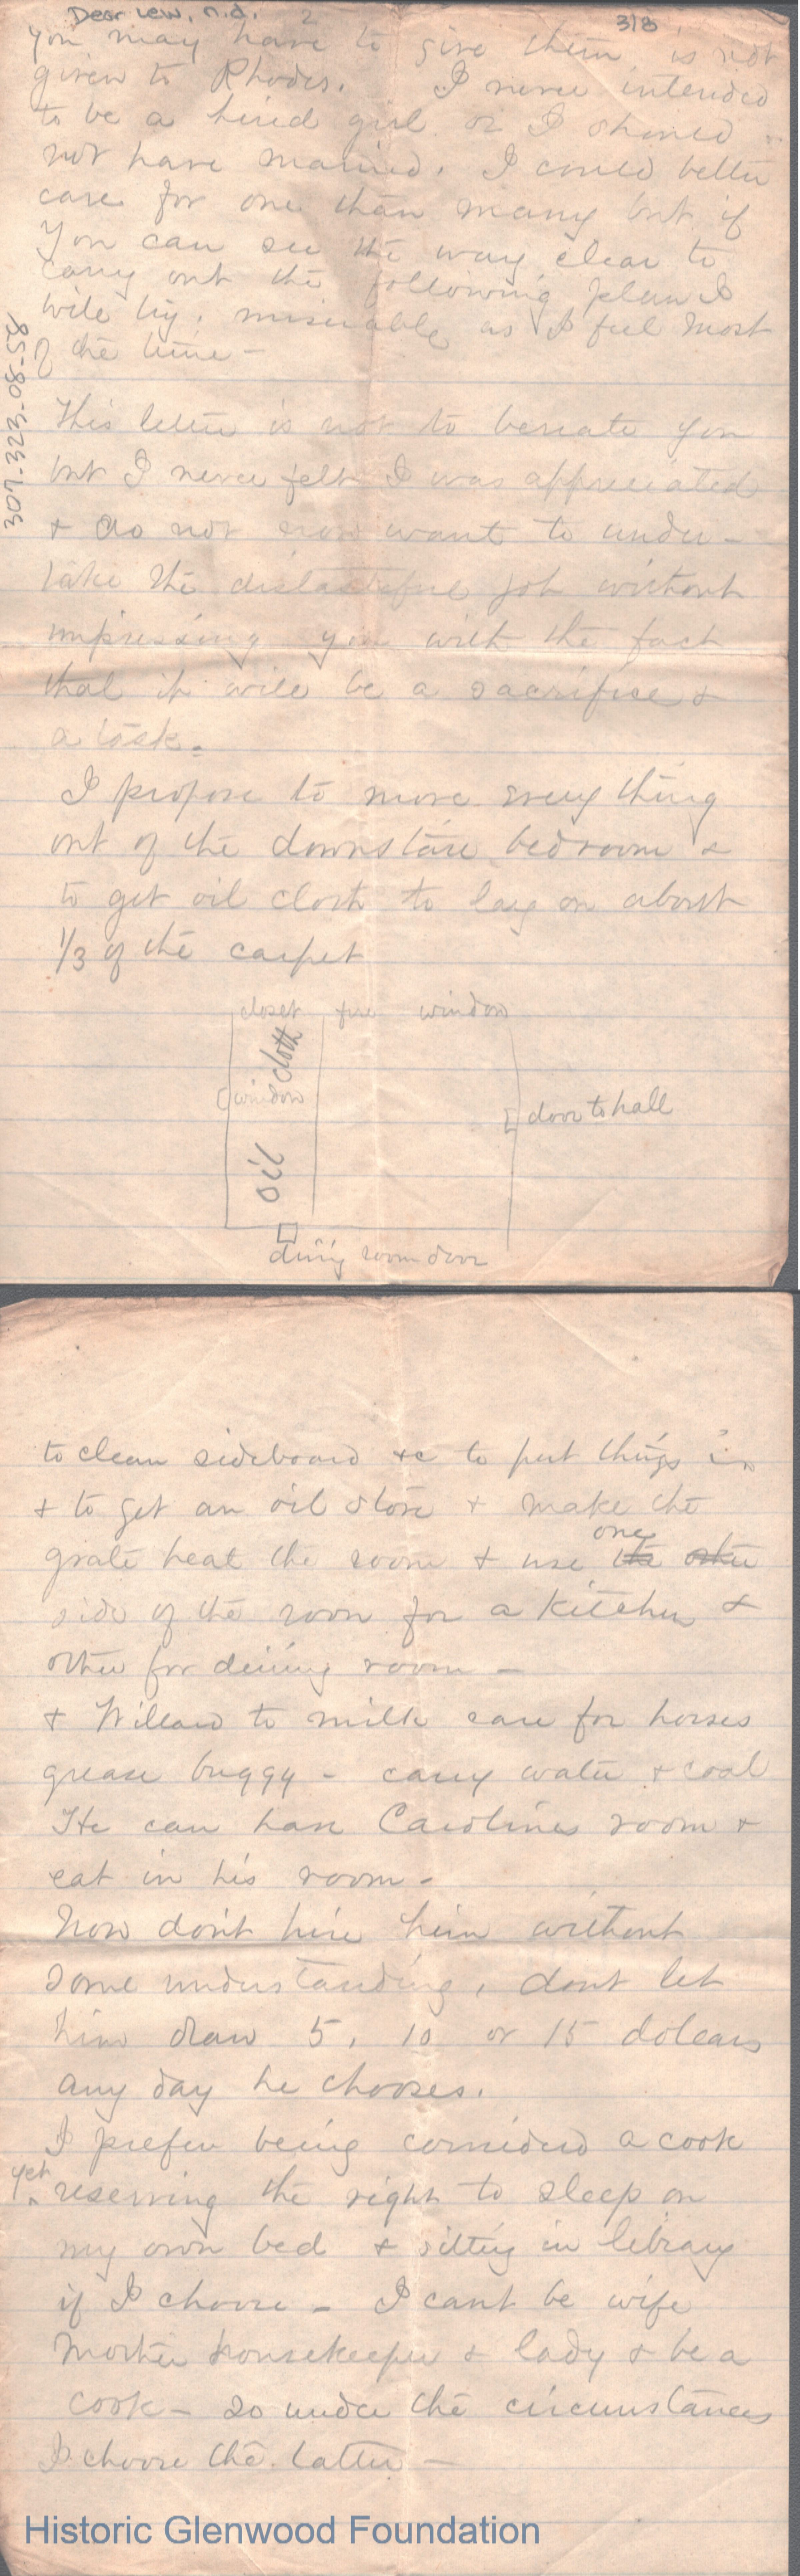 Dear Lew, n.d. 2 3/3
you may have to give them, is not
given to Rhodes. I never intended
to be a hired girl or I should
not have married. I could better
care for one than many but if
you can see the way clear to
carry out the following plan I
will try, miserable as I feel most
of the time -
307-323-08-58
This letter is not to berate you
but I never felt I was appreciated
& do not now want to under-
take the distasteful job without
impressing you with the fact
that it will be a sacrifice &
a task.
I propose to move every thing
out of the downstairs bedroom &
to get oil cloth to lay on about
1/3 of the carpet
closet fire window
oil cloth
window
door to hall
dinig room door
to clean sideboard &c to put things in
& to get an oil stove & make the
grate heat the room & use one the other
side of the room for a kitchen &
other for dining room -
& Willard to milk care for horses
grease buggy - carry water & coal
He can have Carolines room &
eat in his room -
Now don't hire him without
some understanding, dont let
him draw 5, 10 or 15 dollars
any day he chooses.
I prefer being considered a cook
yet reserving the right to sleep on
my own bed & sitting in library
if I choose - I cant be wife
Mother housekeeper & lady & be a
cook - so under the circumstances
I choose the latter -
Historic Glenwood Foundation